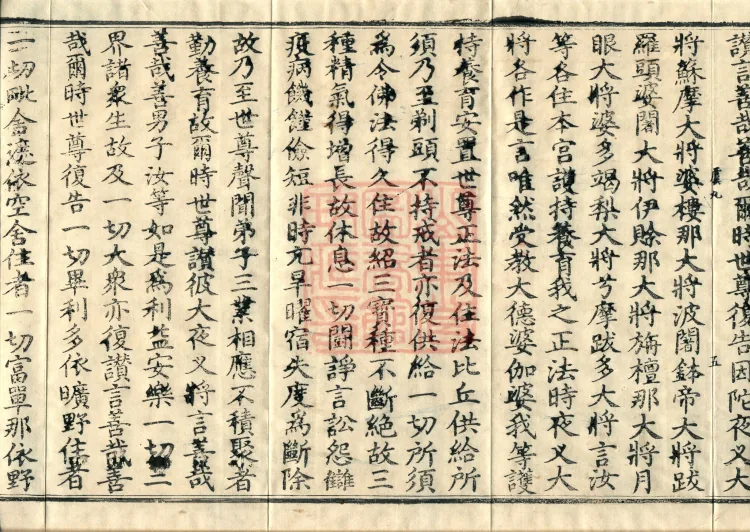 讃言善哉善哉爾時世尊復告因陀夜叉大
將蘇摩大將婆樓那大將波闍鉢帝大將跋
虞九
羅頭婆闍大將伊賒那大將旃檀那大將月
五
眼大將婆多竭梨大將兮摩跋多大將言汝
等各住本宮護持養育我之正法時夜叉大
將各作是言唯然受教大德婆伽婆我等護
持養育安置世尊正法及住法比丘供給所
須乃至剃頭不持戒者亦復供給一切所須
爲令佛法得久住故紹三寶種不斷絶故三
種精氣得增長故休息一切鬪諍言訟怨讎
疫病饑饉儉短非時亢旱曜宿失度爲斷除
故乃至世尊聲聞弟子三業相應不積聚者
勤養育故爾時世尊讃彼大夜叉將言善哉
善哉善男子汝等如是爲利益安樂一切三
界諸衆生故及一切大衆亦復讃言善哉善
哉爾時世尊復告一切畢利多依曠野住者
一切毗舍遮依空舍住者一切富單那依野